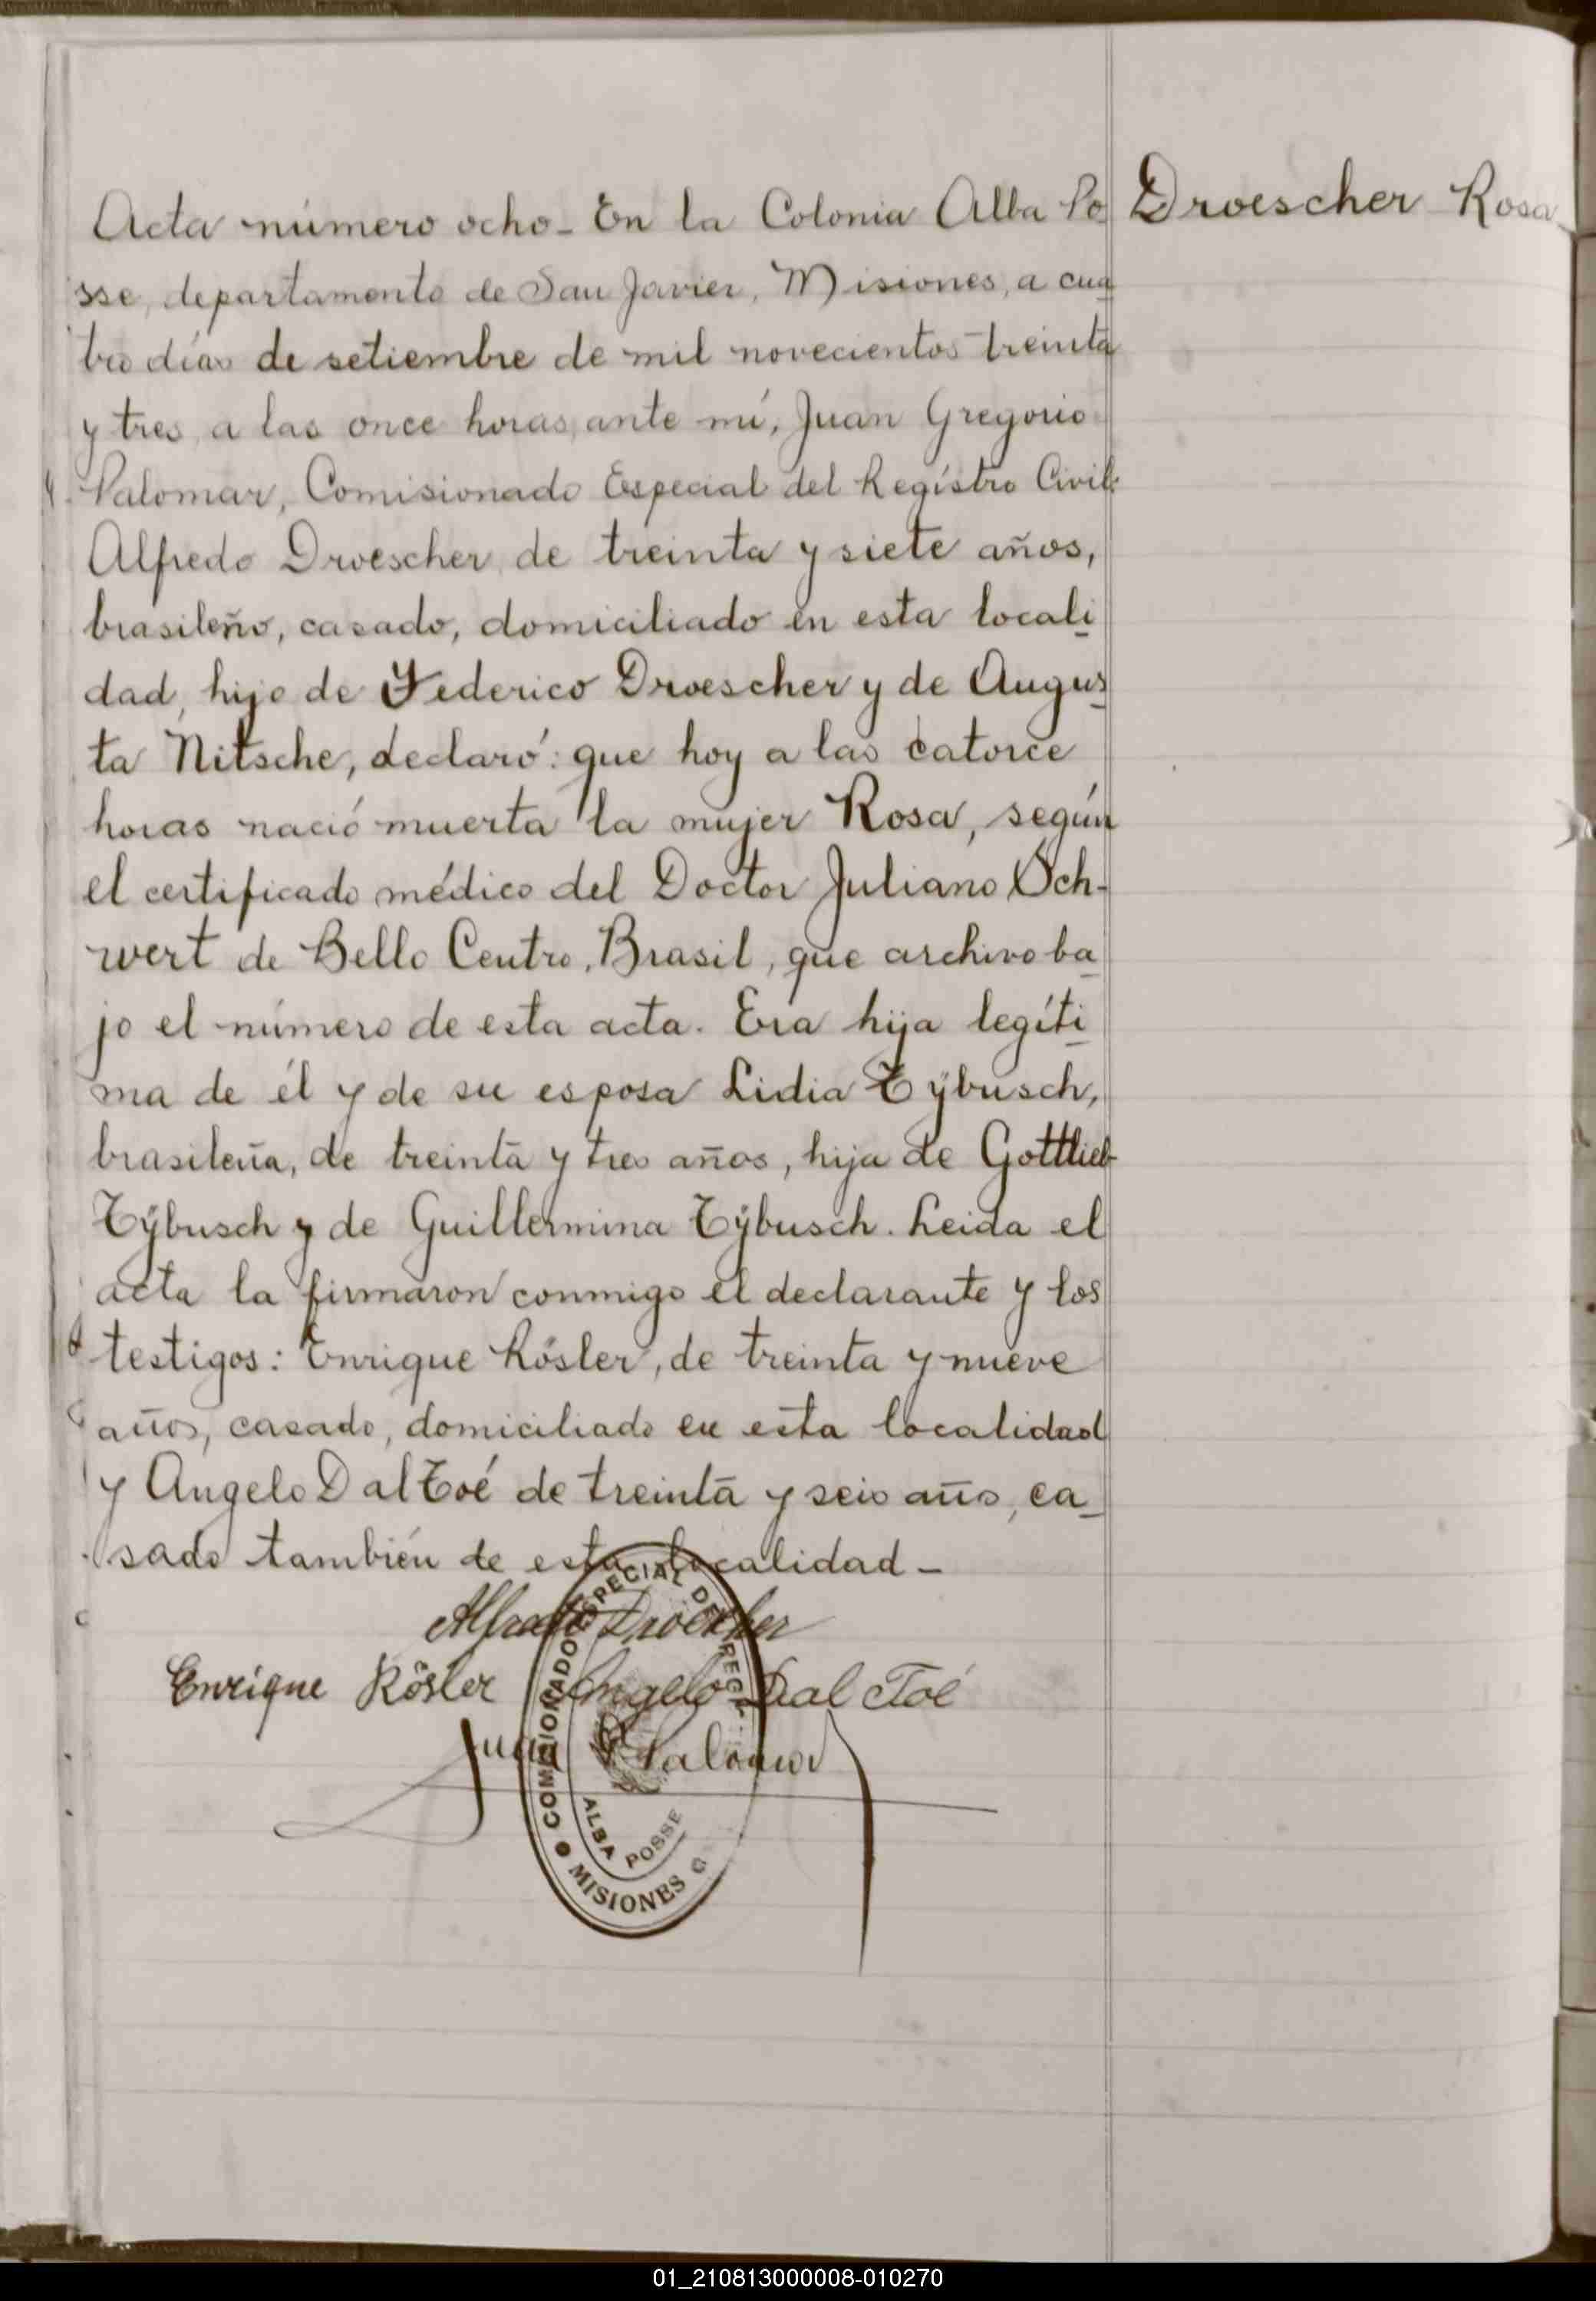 Acta número ocho_ En la Colonia Alba Po
Droescher Rosa
sse, departamento de San Javier, Misiones, a cua
tro días de setiembre de mil novecientos treinta
y tres, a las once horas, ante mí, Juan Gregorio
Palomar, Comisionado Especial del Registro Civil:
Alfredo Droescher, de treinta y siete años,
brasileño, casado, domiciliado en esta locali
dad, hijo de Federico Droescher y de Augus
ta Nitsche, declaró: que hoy a las catorce
horas nació muerta la mujer Rosa, según
el certificado médico del Doctor Juliano Och-
wert de Bello Centro, Brasil, que archivo ba
jo el número de esta acta. Era hija legíti
ma de él y de su esposa Lidia Tÿbusch,
brasileña, de treinta y tres años, hija de Gottlieb
Tÿbusch y de Guillermina Tÿbusch. Leida el
acta la firmaron conmigo el declarante y los
testigos: Enrique Rösler, de treinta y nueve
años, casado, domiciliado en esta localidad
y Angelo Dal Toé de treinta y seis años, ca
sado también de esta localidad_
Alfredo Dröescher
Enrique Rösler Angelo Dal Toé
Juan G Palomar
COMISIONADO ESPECIAL DEL REG
ALBA POSSE
MISIONES
01_210813000008-010270